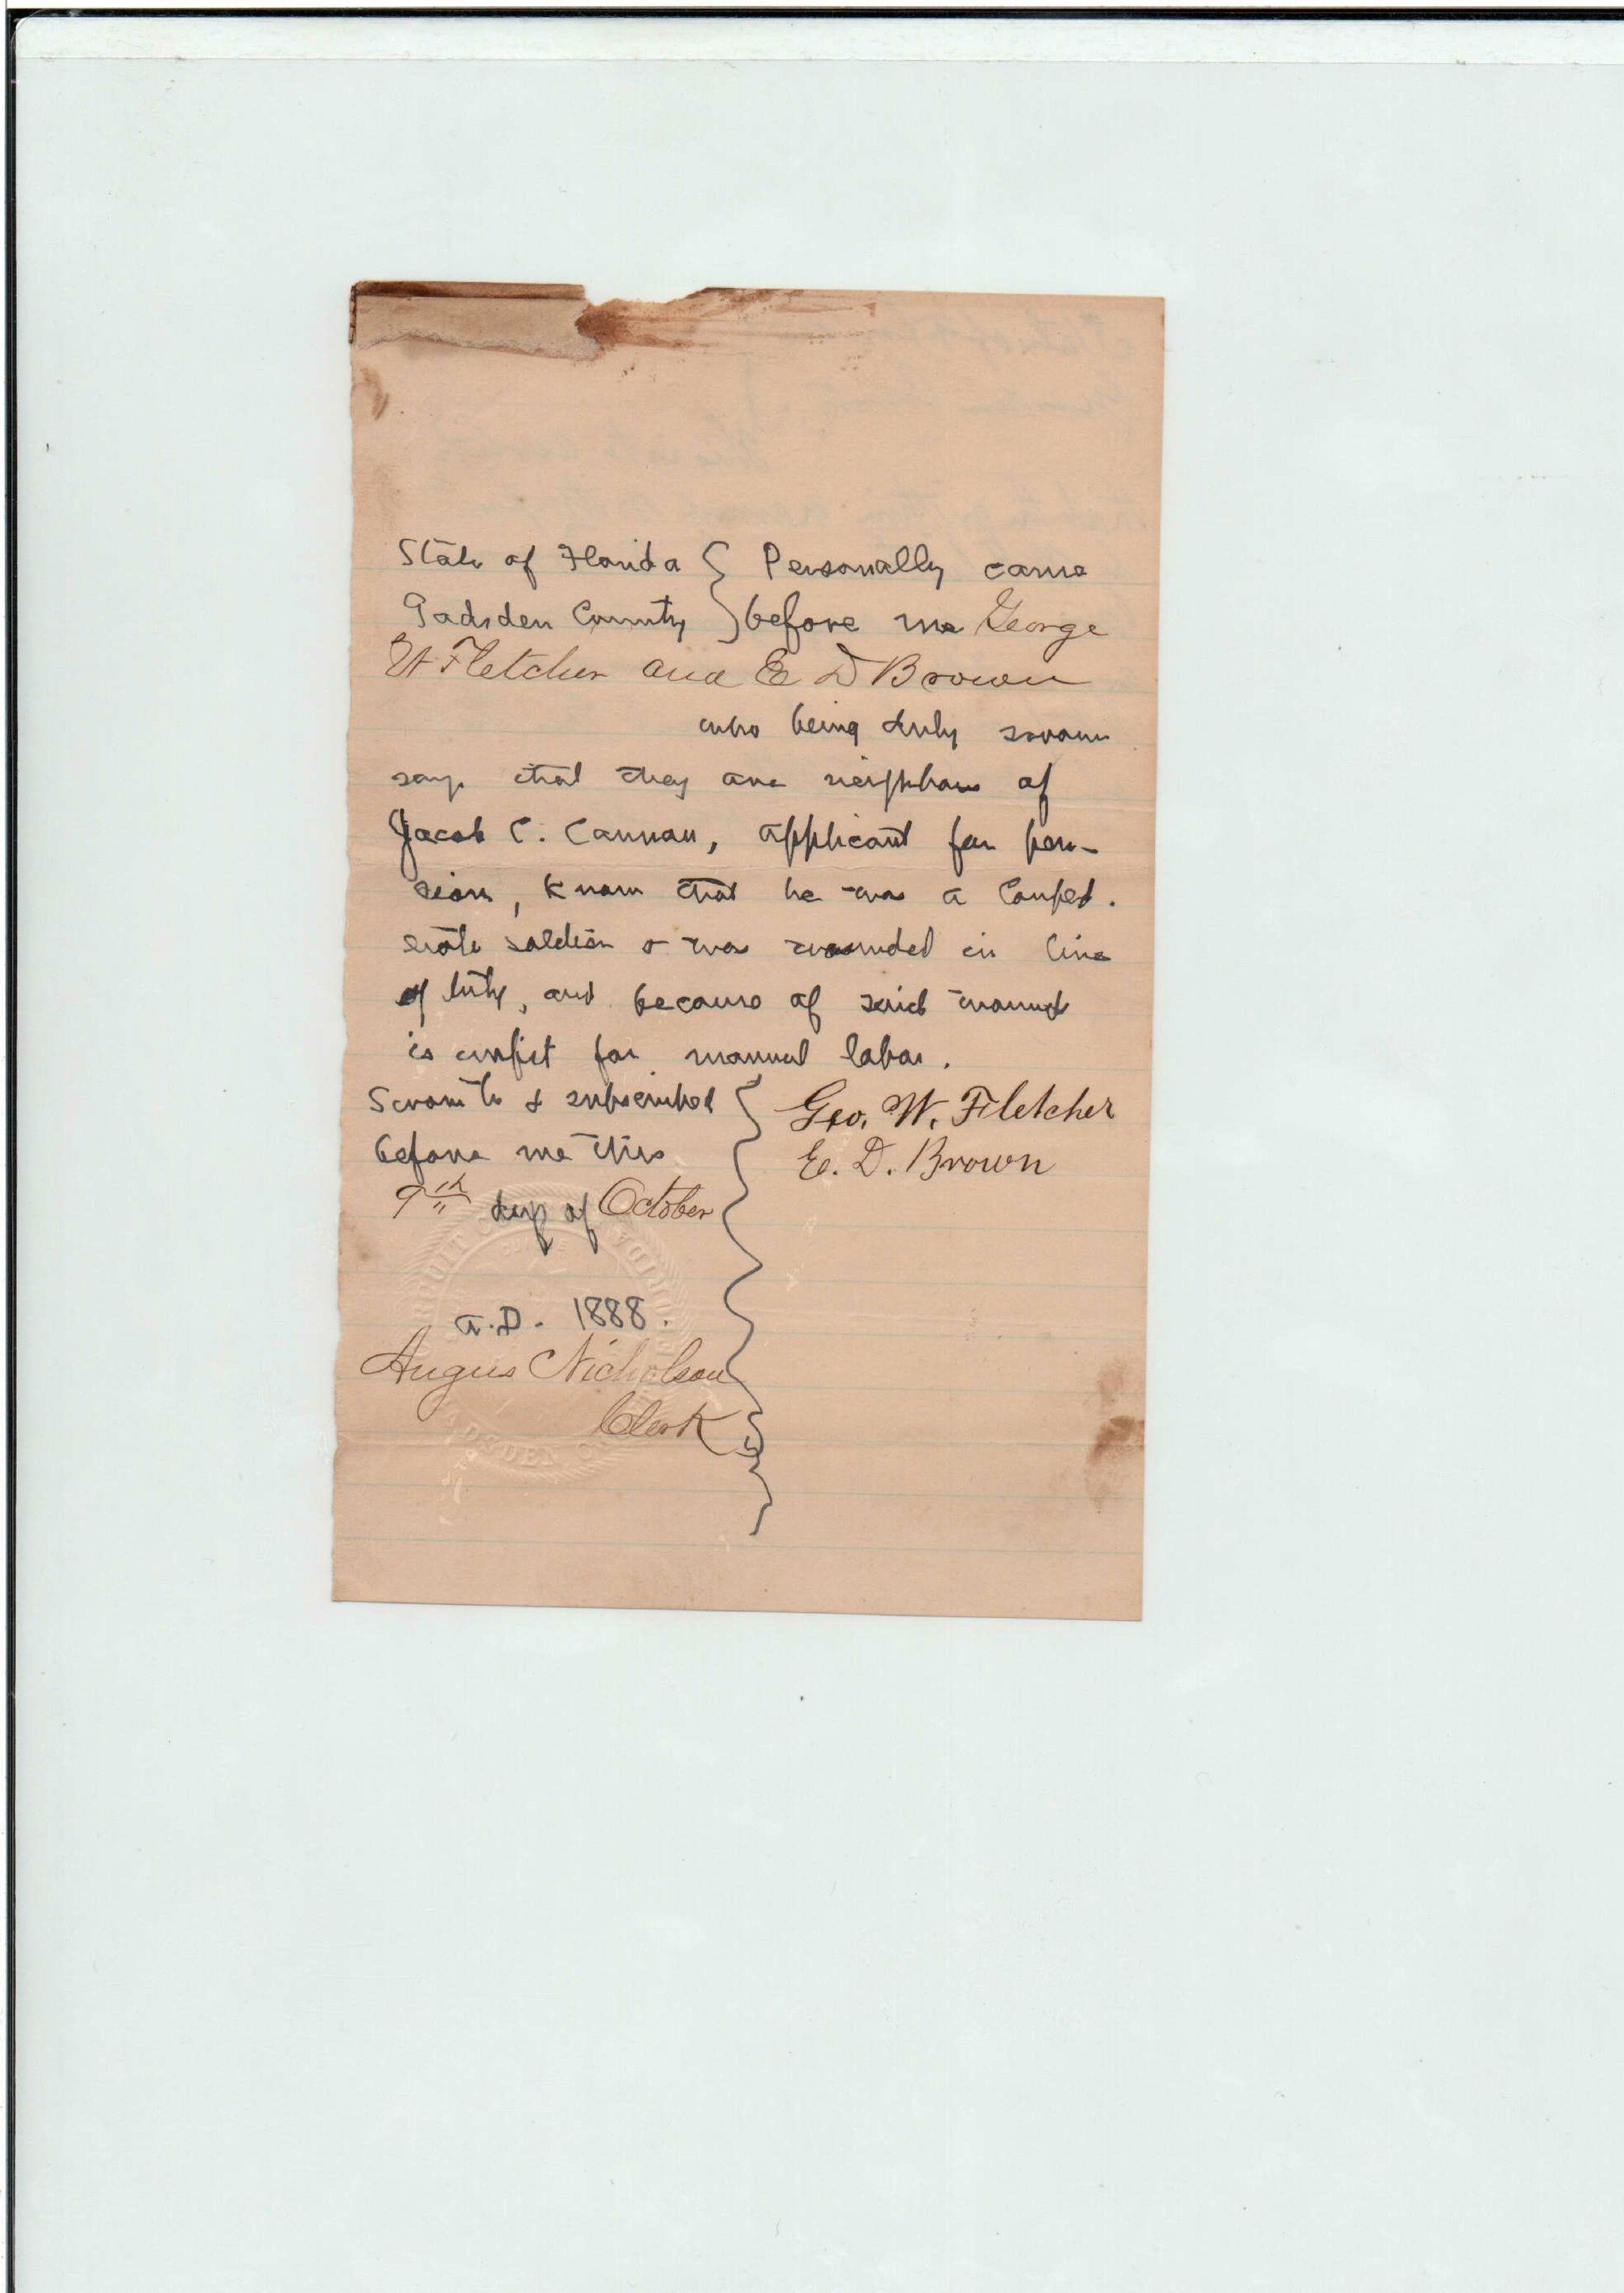 State of Florida } Personally came
Gadsden County } before me George
W Fletcher and E D Brown
who being duly sworn
say that they are neighbors of
Jacob C. Cannan, applicant for pen-
sion, know that he was a Confed-
erate soldier & was wounded in line
of duty, and because of said wound
is unfit for manual labor.
Sworn to & subscribed
before me this
9th day of October
A.D. 1888.
Angus Nicholson
Clerk
Geo. W. Fletcher
E. D. Brown
CIRCUIT
FLORIDA
GADSDEN CO